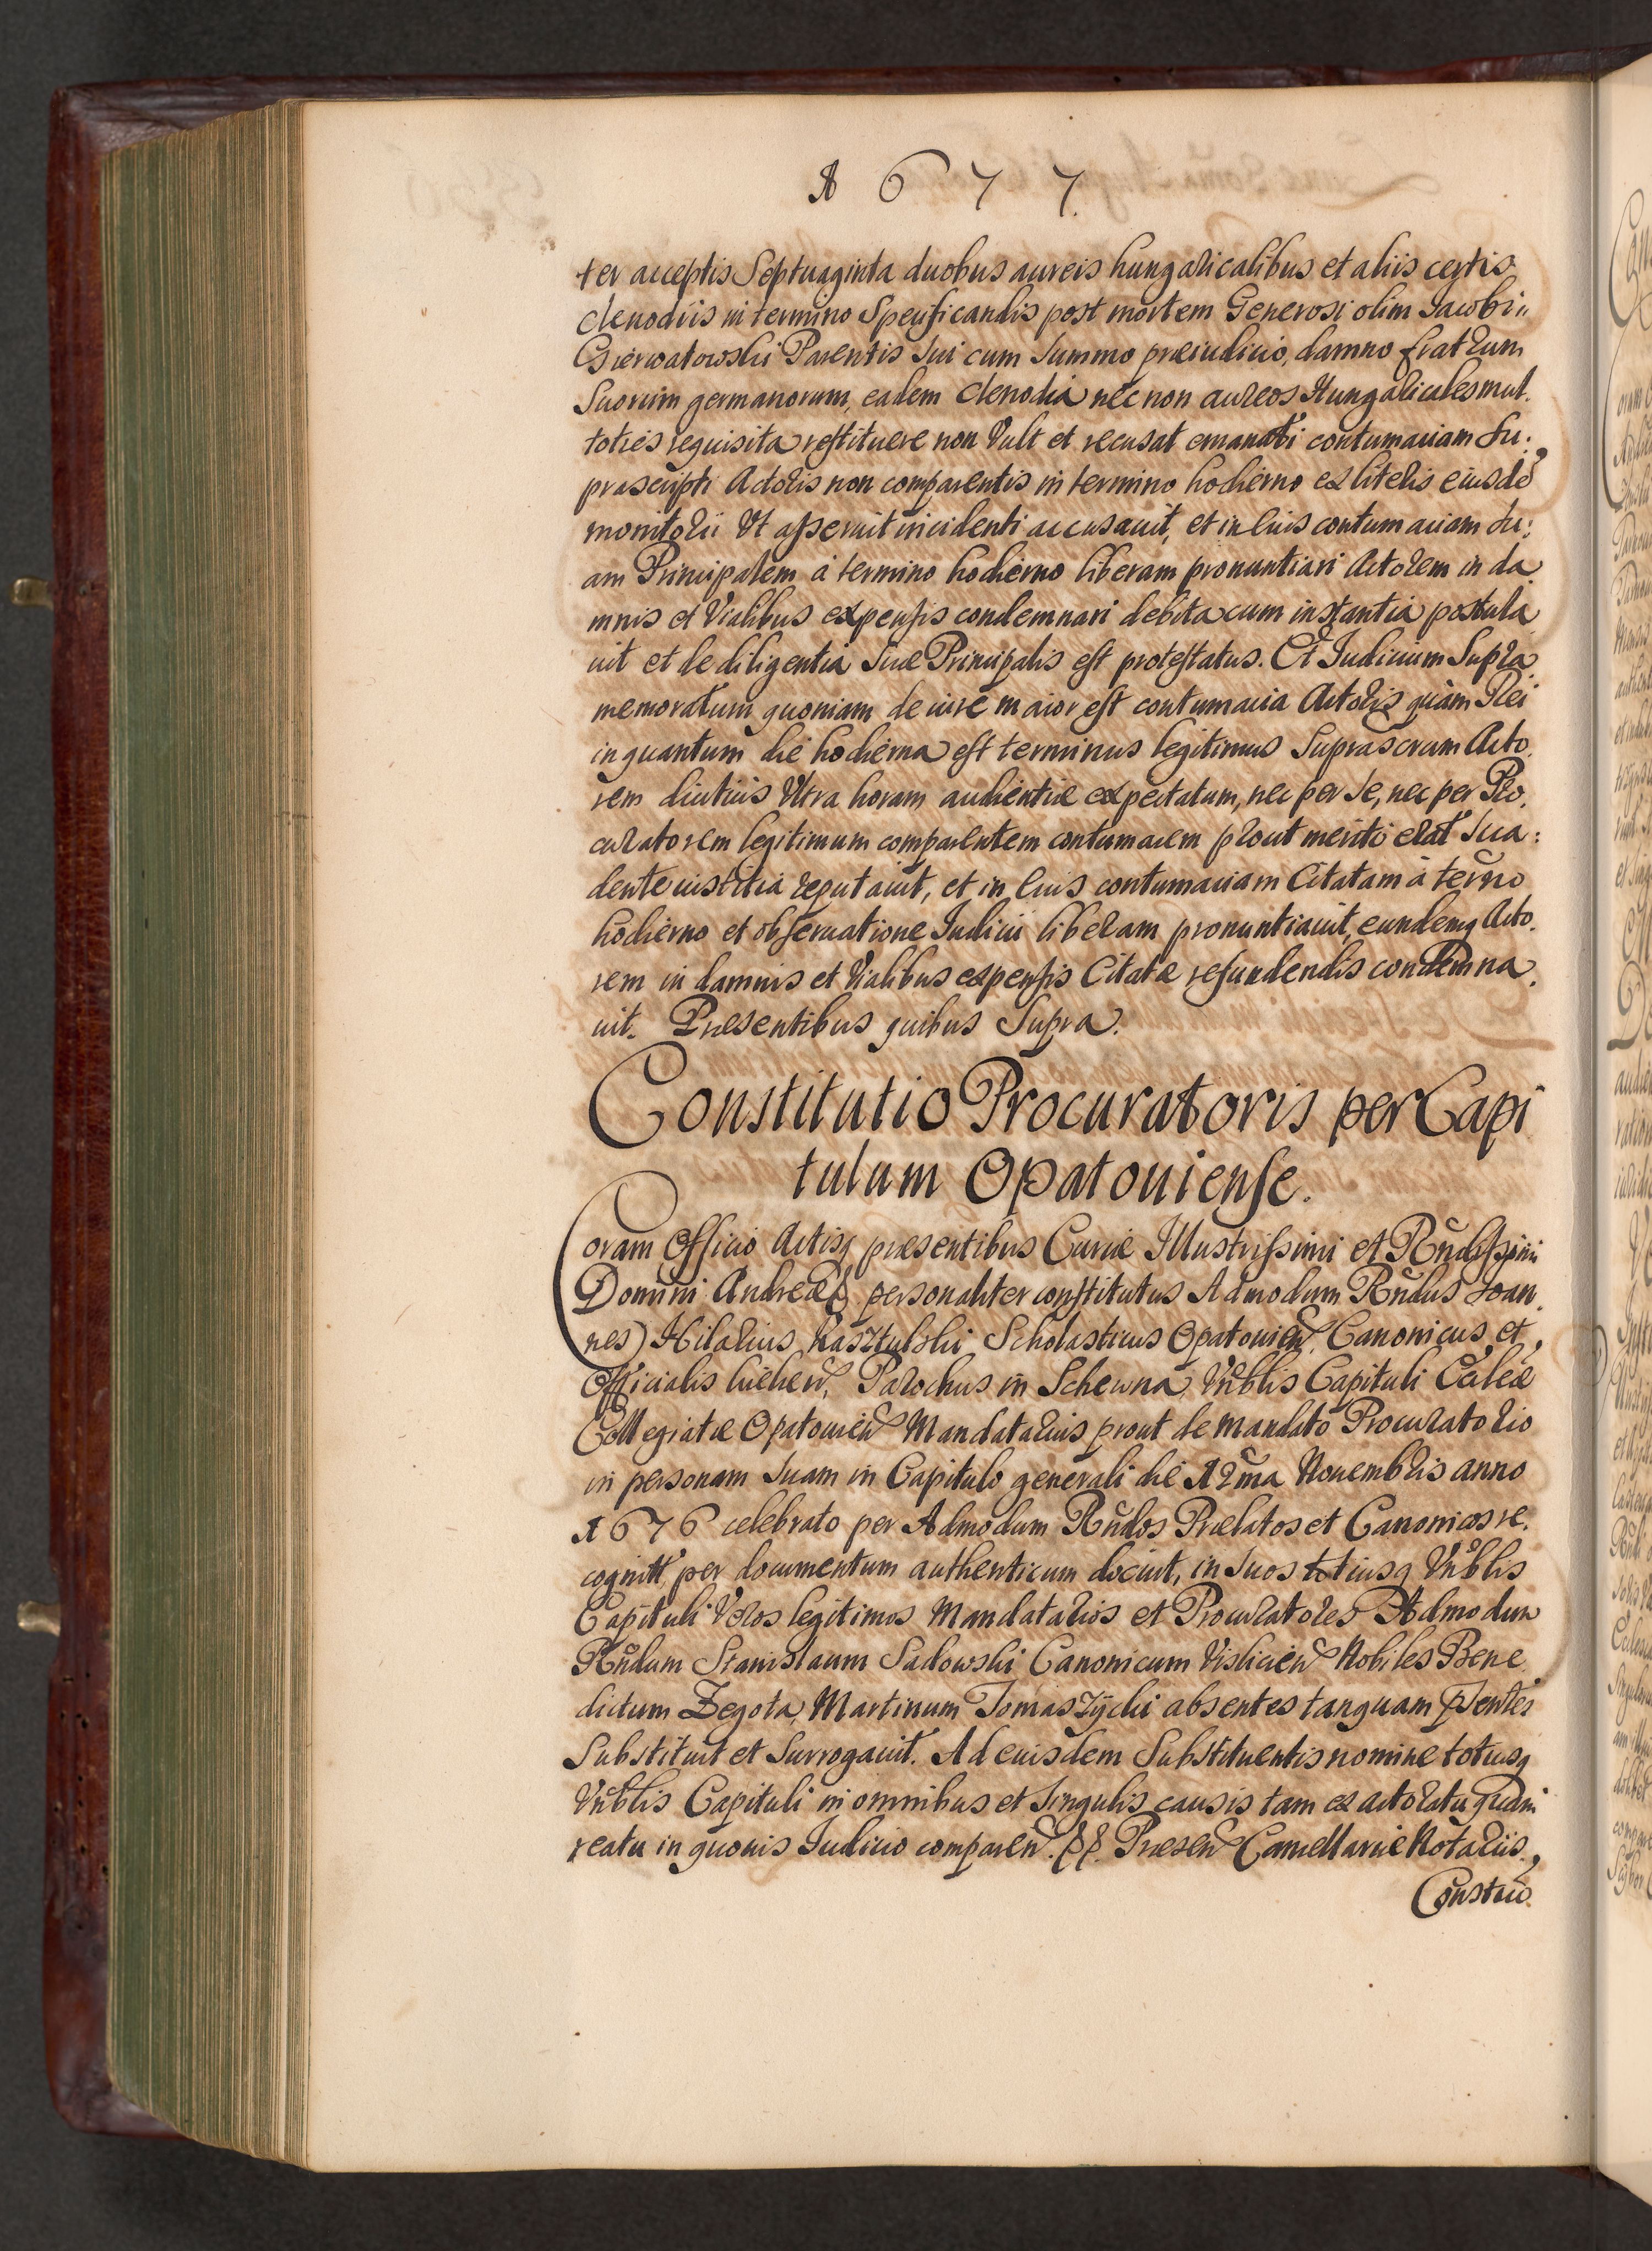 1677.
ter acceptis Septuaginta duobus aureis hungaricalibus et aliis certis
clenodiis in termino Specificandis post mortem Generosi olim Iacobi
Parentis Sui cum Summo præiudicio, damno fratrum
Suorum germanorum, eadem clenodia nec non aureos Hungaricales mul.
toties requisita restituere non Vult et recusat emanati contumaciam Su:
prascripti Actoris non comparentis in termino hodierno ex literis eiusdē
monitorii Vt asseruit incidenti accusauit, et in euis contumaciam Su:
am Principalem à termino hodierno liberam pronuntiari Actorem in da
mnis et Vialibus expensis condemnari debita cum instantia postula
uit et de diligentia Suæ Principalis est protestatus. Et Iudicium Supra
memoratum quoniam de iure maior est contumacia Actoris quàm Rei
in quantum die hodierna est terminus legitimus Suprascrum Acto.
rem diutius Vltra horam audientiæ expectatum, nec per Se, nec per Pro.
curatorem legitimum comparentem contumacem prout meriti erat Sua:
dente iustitia reputauit, et in euis contumaciam Citatam à termo
hodierno et obseruatione Iudicii liberam pronuntiauit, eundemq Acto.
rem in damnis et Vialibus expensis Citatæ refundendis condemna.
uit. Præsentibus quibus Supra.
Constitutio Procuratoris per Capi
tulum Opatouiense.
Coram Officio Actisq præsentibus Curiæ Illustrissimi et Rndissimi
Domini Andreæ personaliter constitutus Admodum Rndus Ioan.
nes Hilarius Scholasticus Opatouien Canonicus, et
Officialis Parochus in Vnblis Capituli Eccleæ
Collegiatæ Opatouien Mandatarius prout de mandato Procuratorio
in personam Suam in Capitulo generali die 12ma Nouembris anno
1676 celebrato per Admodum Rndos Prælatos et Canonicos re.
cognitt, per documentum authenticum docuit, in Suos totiusq Vnblis
Capituli Veros legitimos Mandatarios et Procuratores Admodum
Rndum Stanislaum Sadowski Canonicum Vislicien Nobiles Bene
dictum Zegota, Martinum absentes tanquam pSentes
Substituit et Surrogauit. Ad euisdem Substituentis nomine totiusq
Vnblis Capituli in omnibus et Singulis causis tam ex actoratu quàm
reatu in quouis Iudicio comparen. Præsen Cancellariæ Notariis.